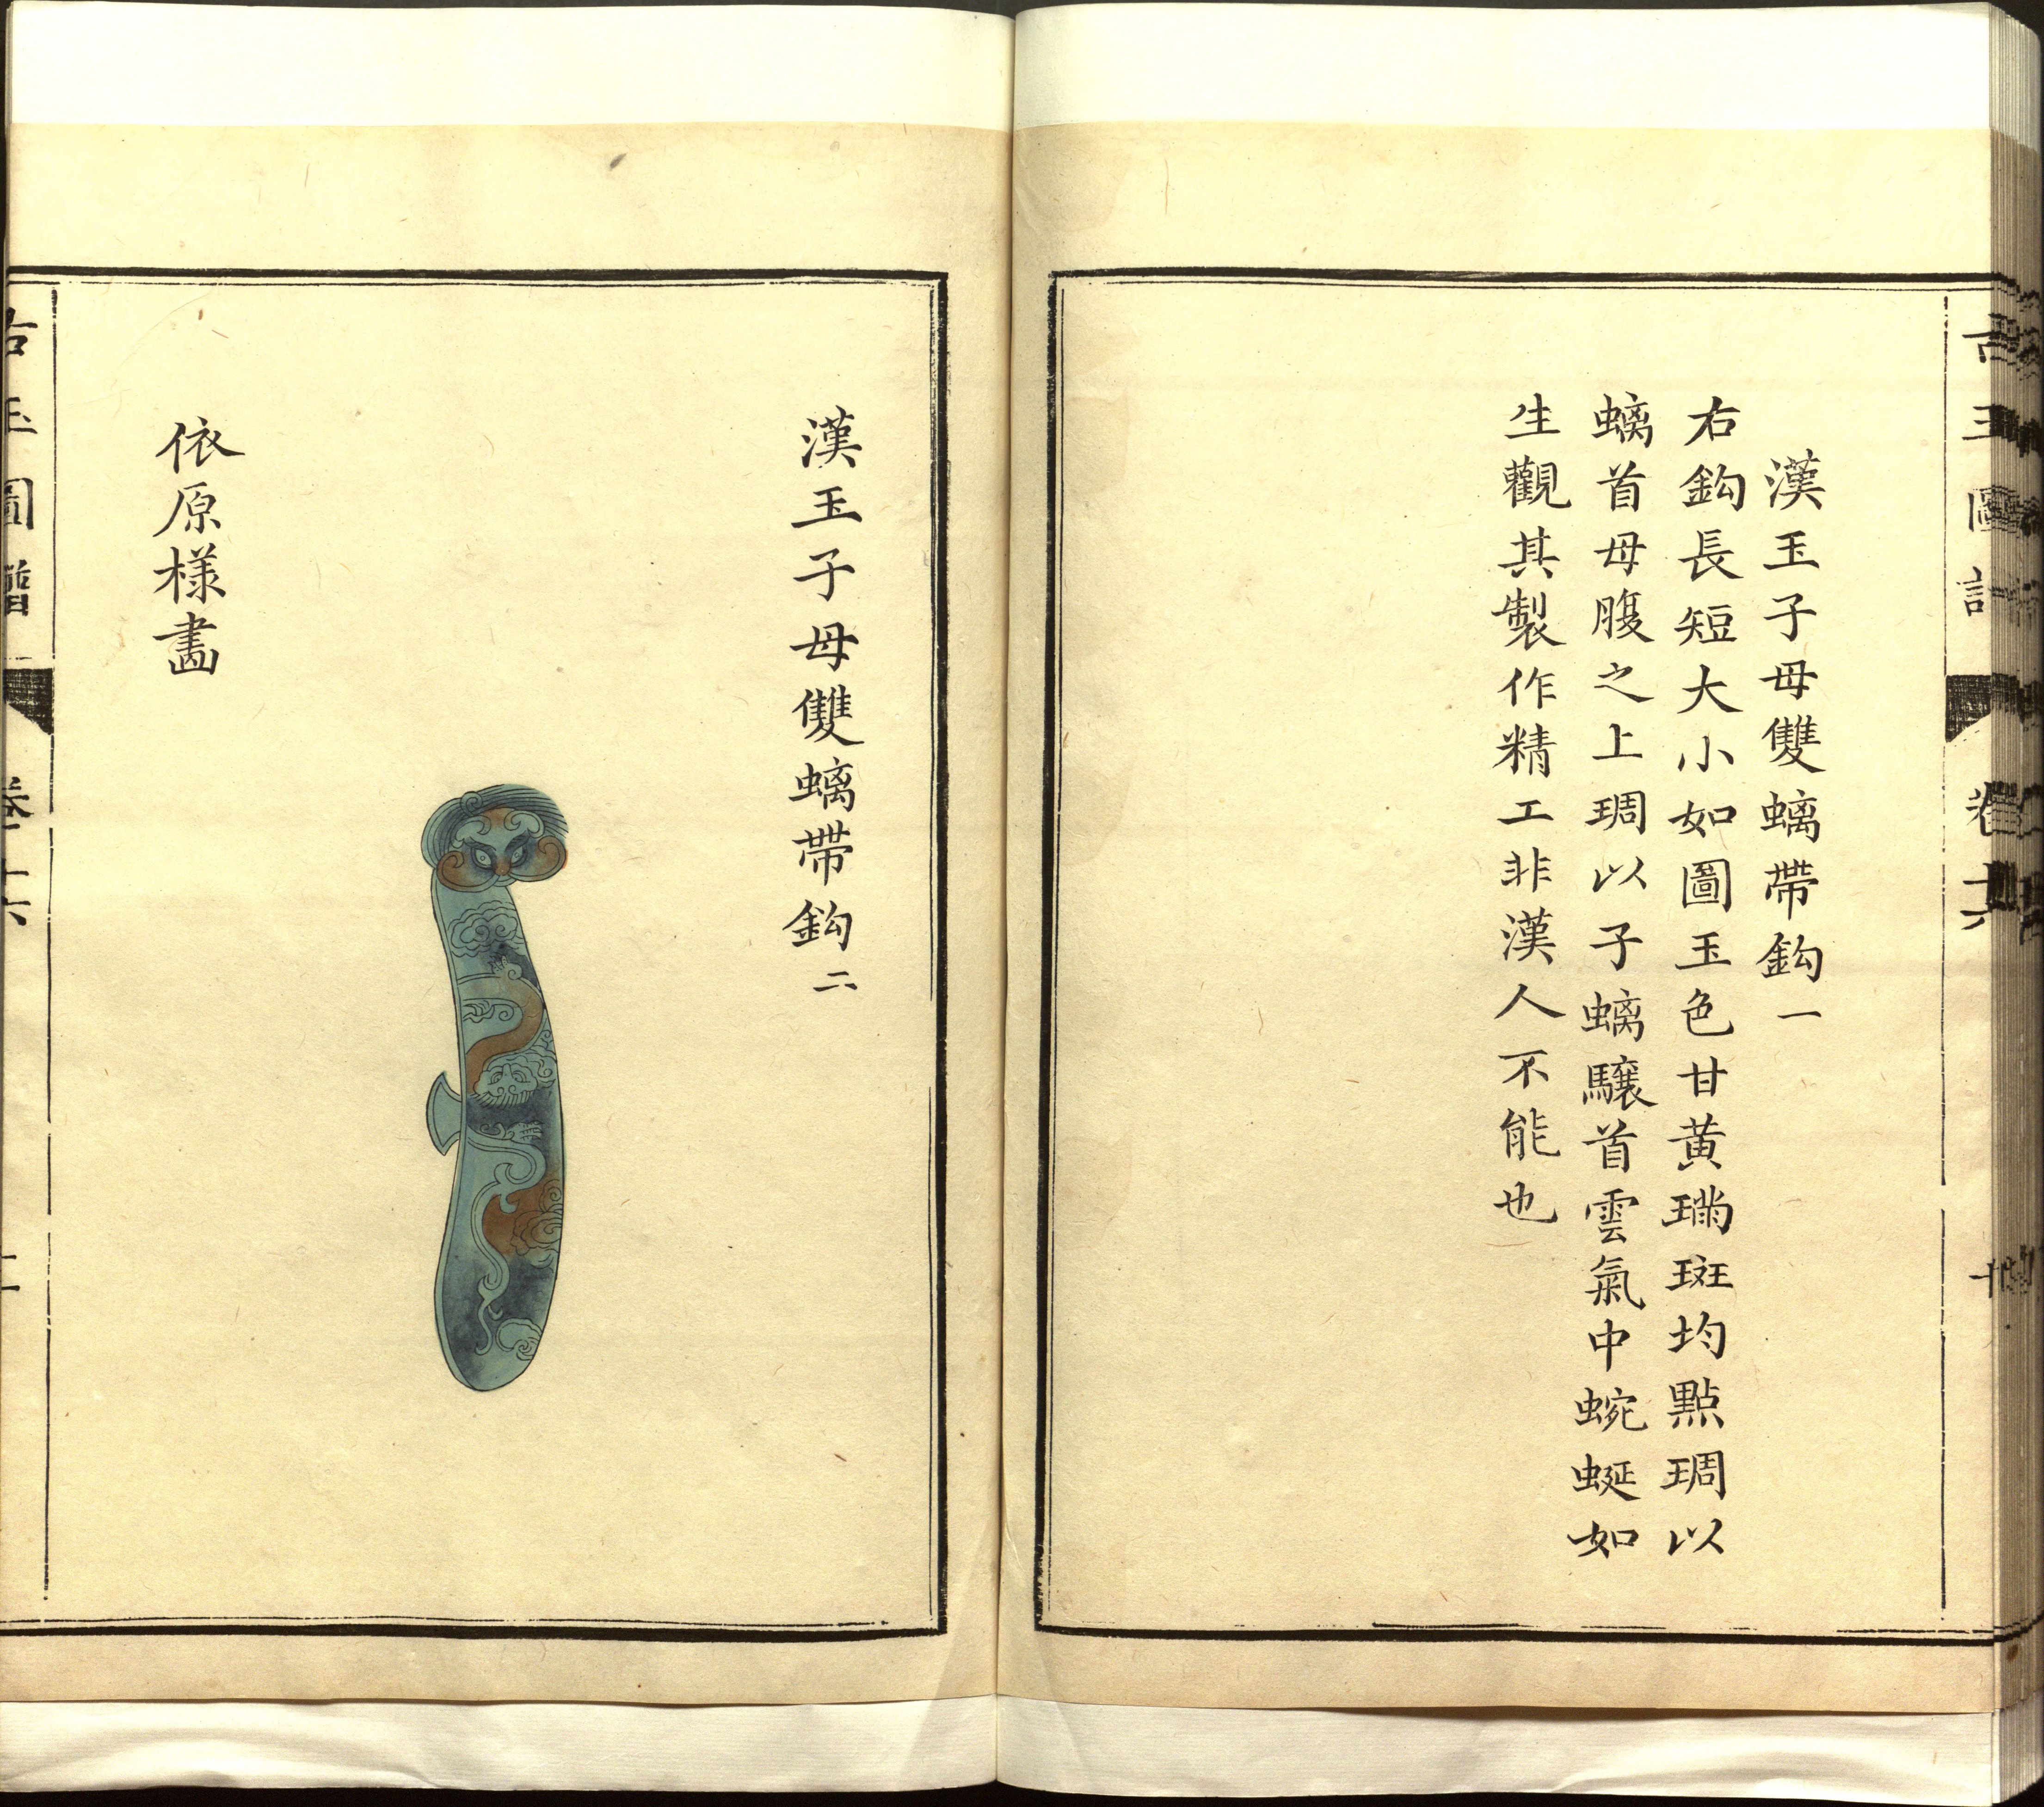 漢玉子母雙螭帶鈎一
右鈎長短大小如圖玉色甘黄璊斑均點琱以
螭首母腹之上琱以子螭驤首雲氣中蜿蜒如
生觀其製作精工非漢人不能也
漢玉子母雙螭帶鈎二
依原様畫
古玉圖譜
卷十六